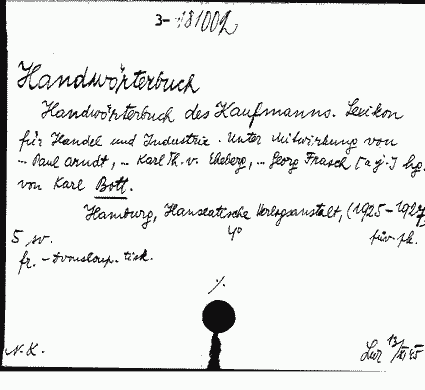 3-131002
Handwörterbuch
Handwörterbuch des Kaufmanns. Lexikon
für Handel und Industrie. Unter Mitwirkung von
... Paul Arndt, ... Karl Th. v. Eheberg, ... Georg Frasch [a j.] hg.
von Karl Bott.
Hamburg, Hanseatische Verlagsanstalt, (1925-1927)
5 sv. 4°
fr. - dvousloup. tisk.
·/.
N.K.